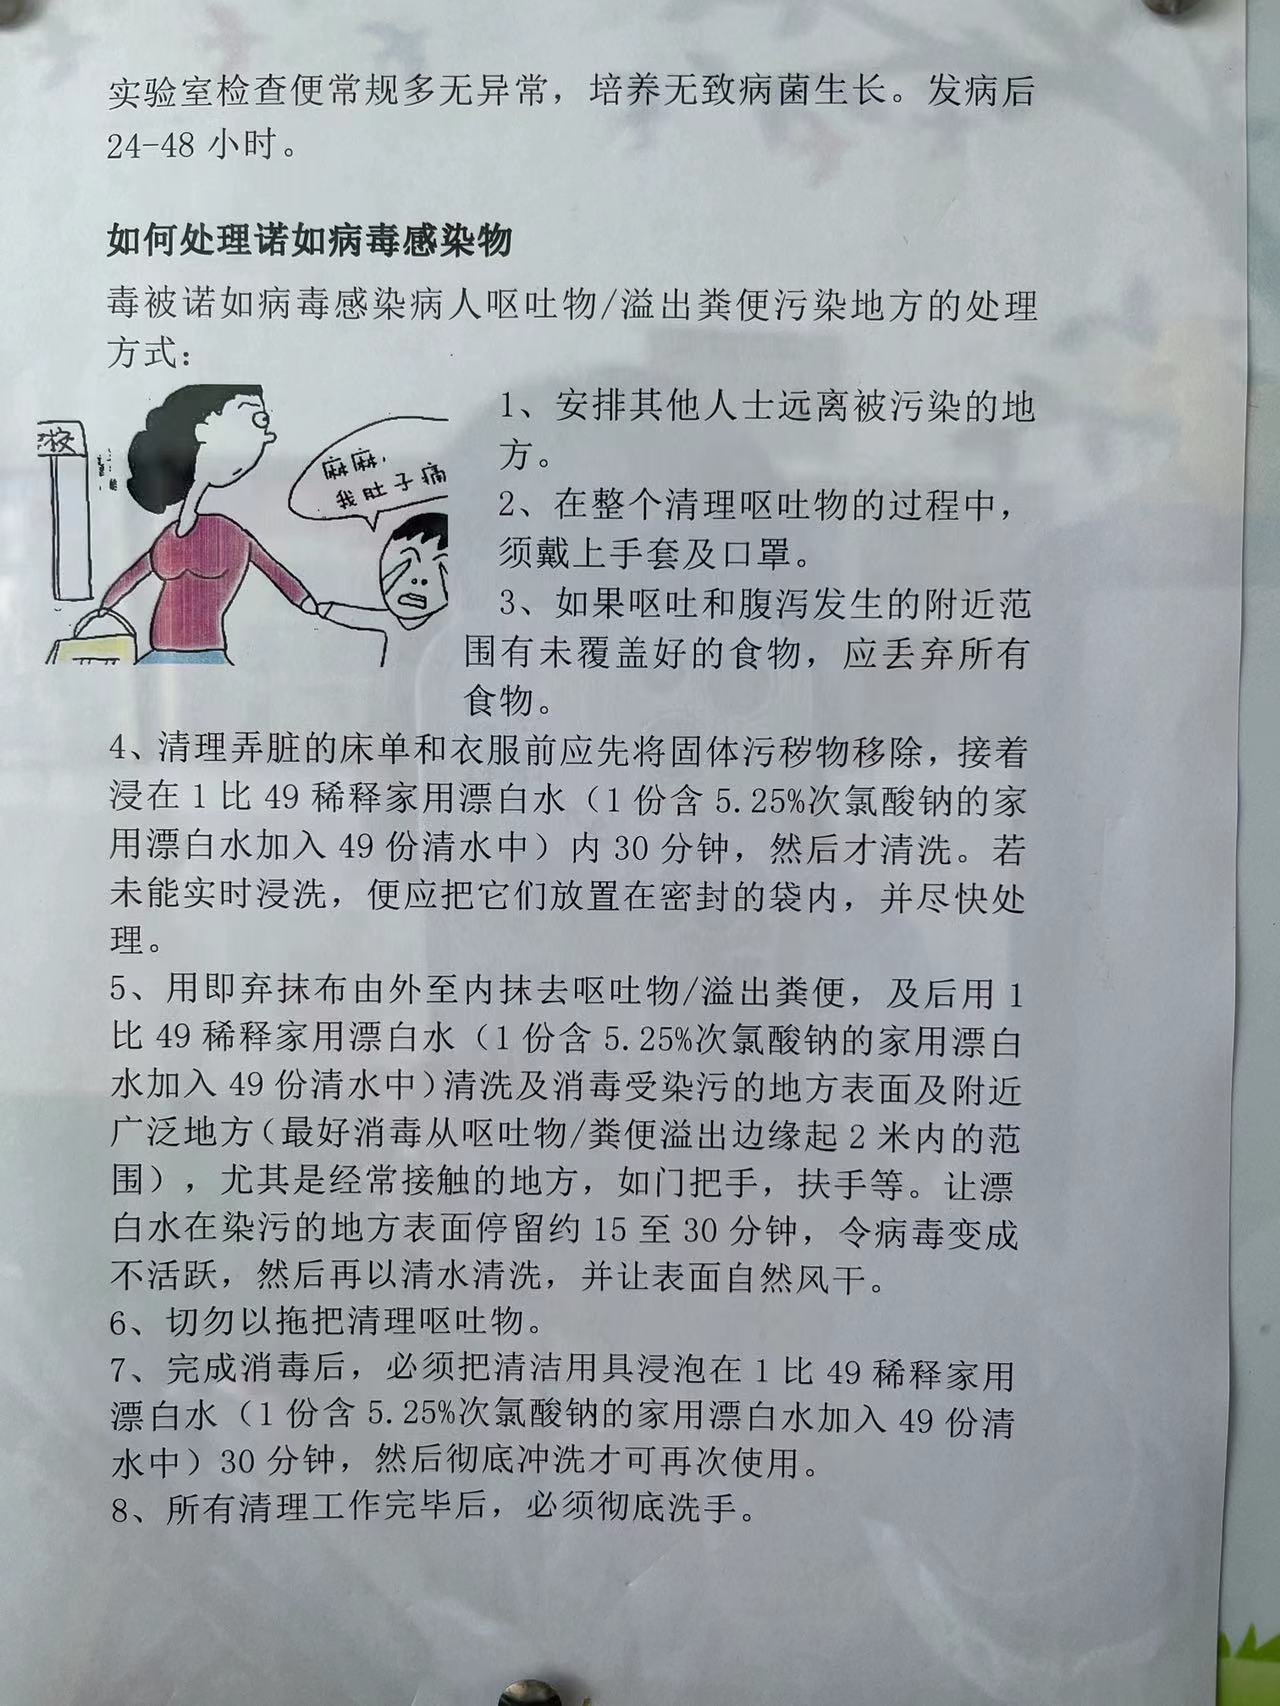 实验室检查便常规多无异常，培养无致病菌生长。发病后
24-48 小时。
如何处理诺如病毒感染物
毒被诺如病毒感染病人呕吐物/溢出粪便污染地方的处理
方式：
校
麻麻，
我肚子痛
1、安排其他人士远离被污染的地
方。
2、在整个清理呕吐物的过程中，
须戴上手套及口罩。
3、如果呕吐和腹泻发生的附近范
围有未覆盖好的食物，应丢弃所有
食物。
4、清理弄脏的床单和衣服前应先将固体污秽物移除，接着
浸在 1 比 49 稀释家用漂白水（1 份含 5.25%次氯酸钠的家
用漂白水加入 49 份清水中）内 30 分钟，然后才清洗。若
未能实时浸洗，便应把它们放置在密封的袋内，并尽快处
理。
5、用即弃抹布由外至内抹去呕吐物/溢出粪便，及后用 1
比 49 稀释家用漂白水（1 份含 5.25%次氯酸钠的家用漂白
水加入 49 份清水中)清洗及消毒受染污的地方表面及附近
广泛地方(最好消毒从呕吐物/粪便溢出边缘起 2 米内的范
围)，尤其是经常接触的地方，如门把手，扶手等。让漂
白水在染污的地方表面停留约 15 至 30 分钟，令病毒变成
不活跃，然后再以清水清洗，并让表面自然风干。
6、切勿以拖把清理呕吐物。
7、完成消毒后，必须把清洁用具浸泡在 1 比 49 稀释家用
漂白水（1 份含 5.25%次氯酸钠的家用漂白水加入 49 份清
水中）30 分钟，然后彻底冲洗才可再次使用。
8、所有清理工作完毕后，必须彻底洗手。